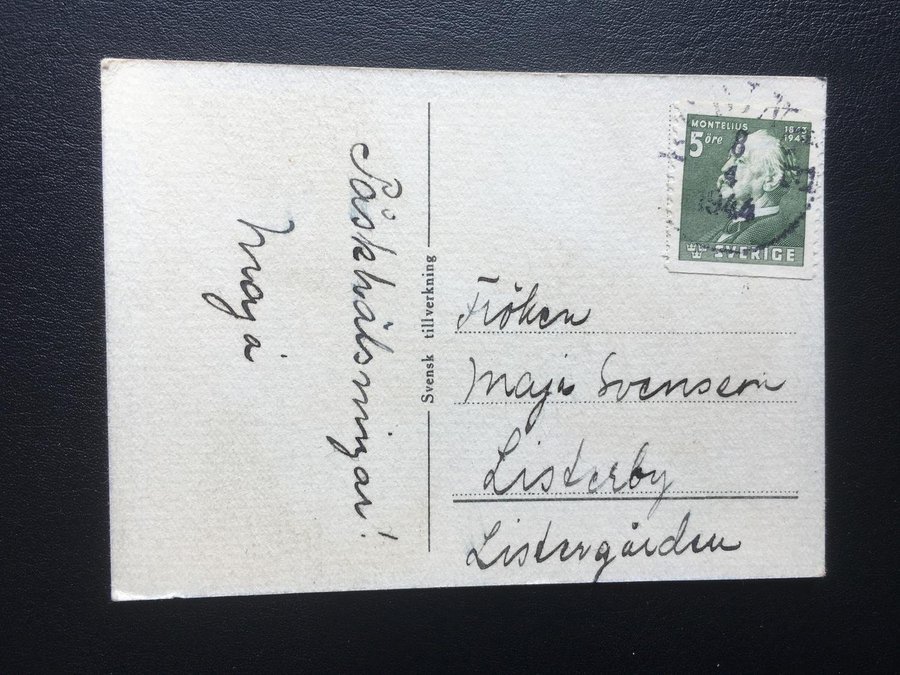 Påskhälsningar!
Maja
Svensk tillverkning
MONTELIUS 1843 1943
5 öre
SVERIGE
8
4
1944
Fröken
Maja Svensson
Listerby
Listergården